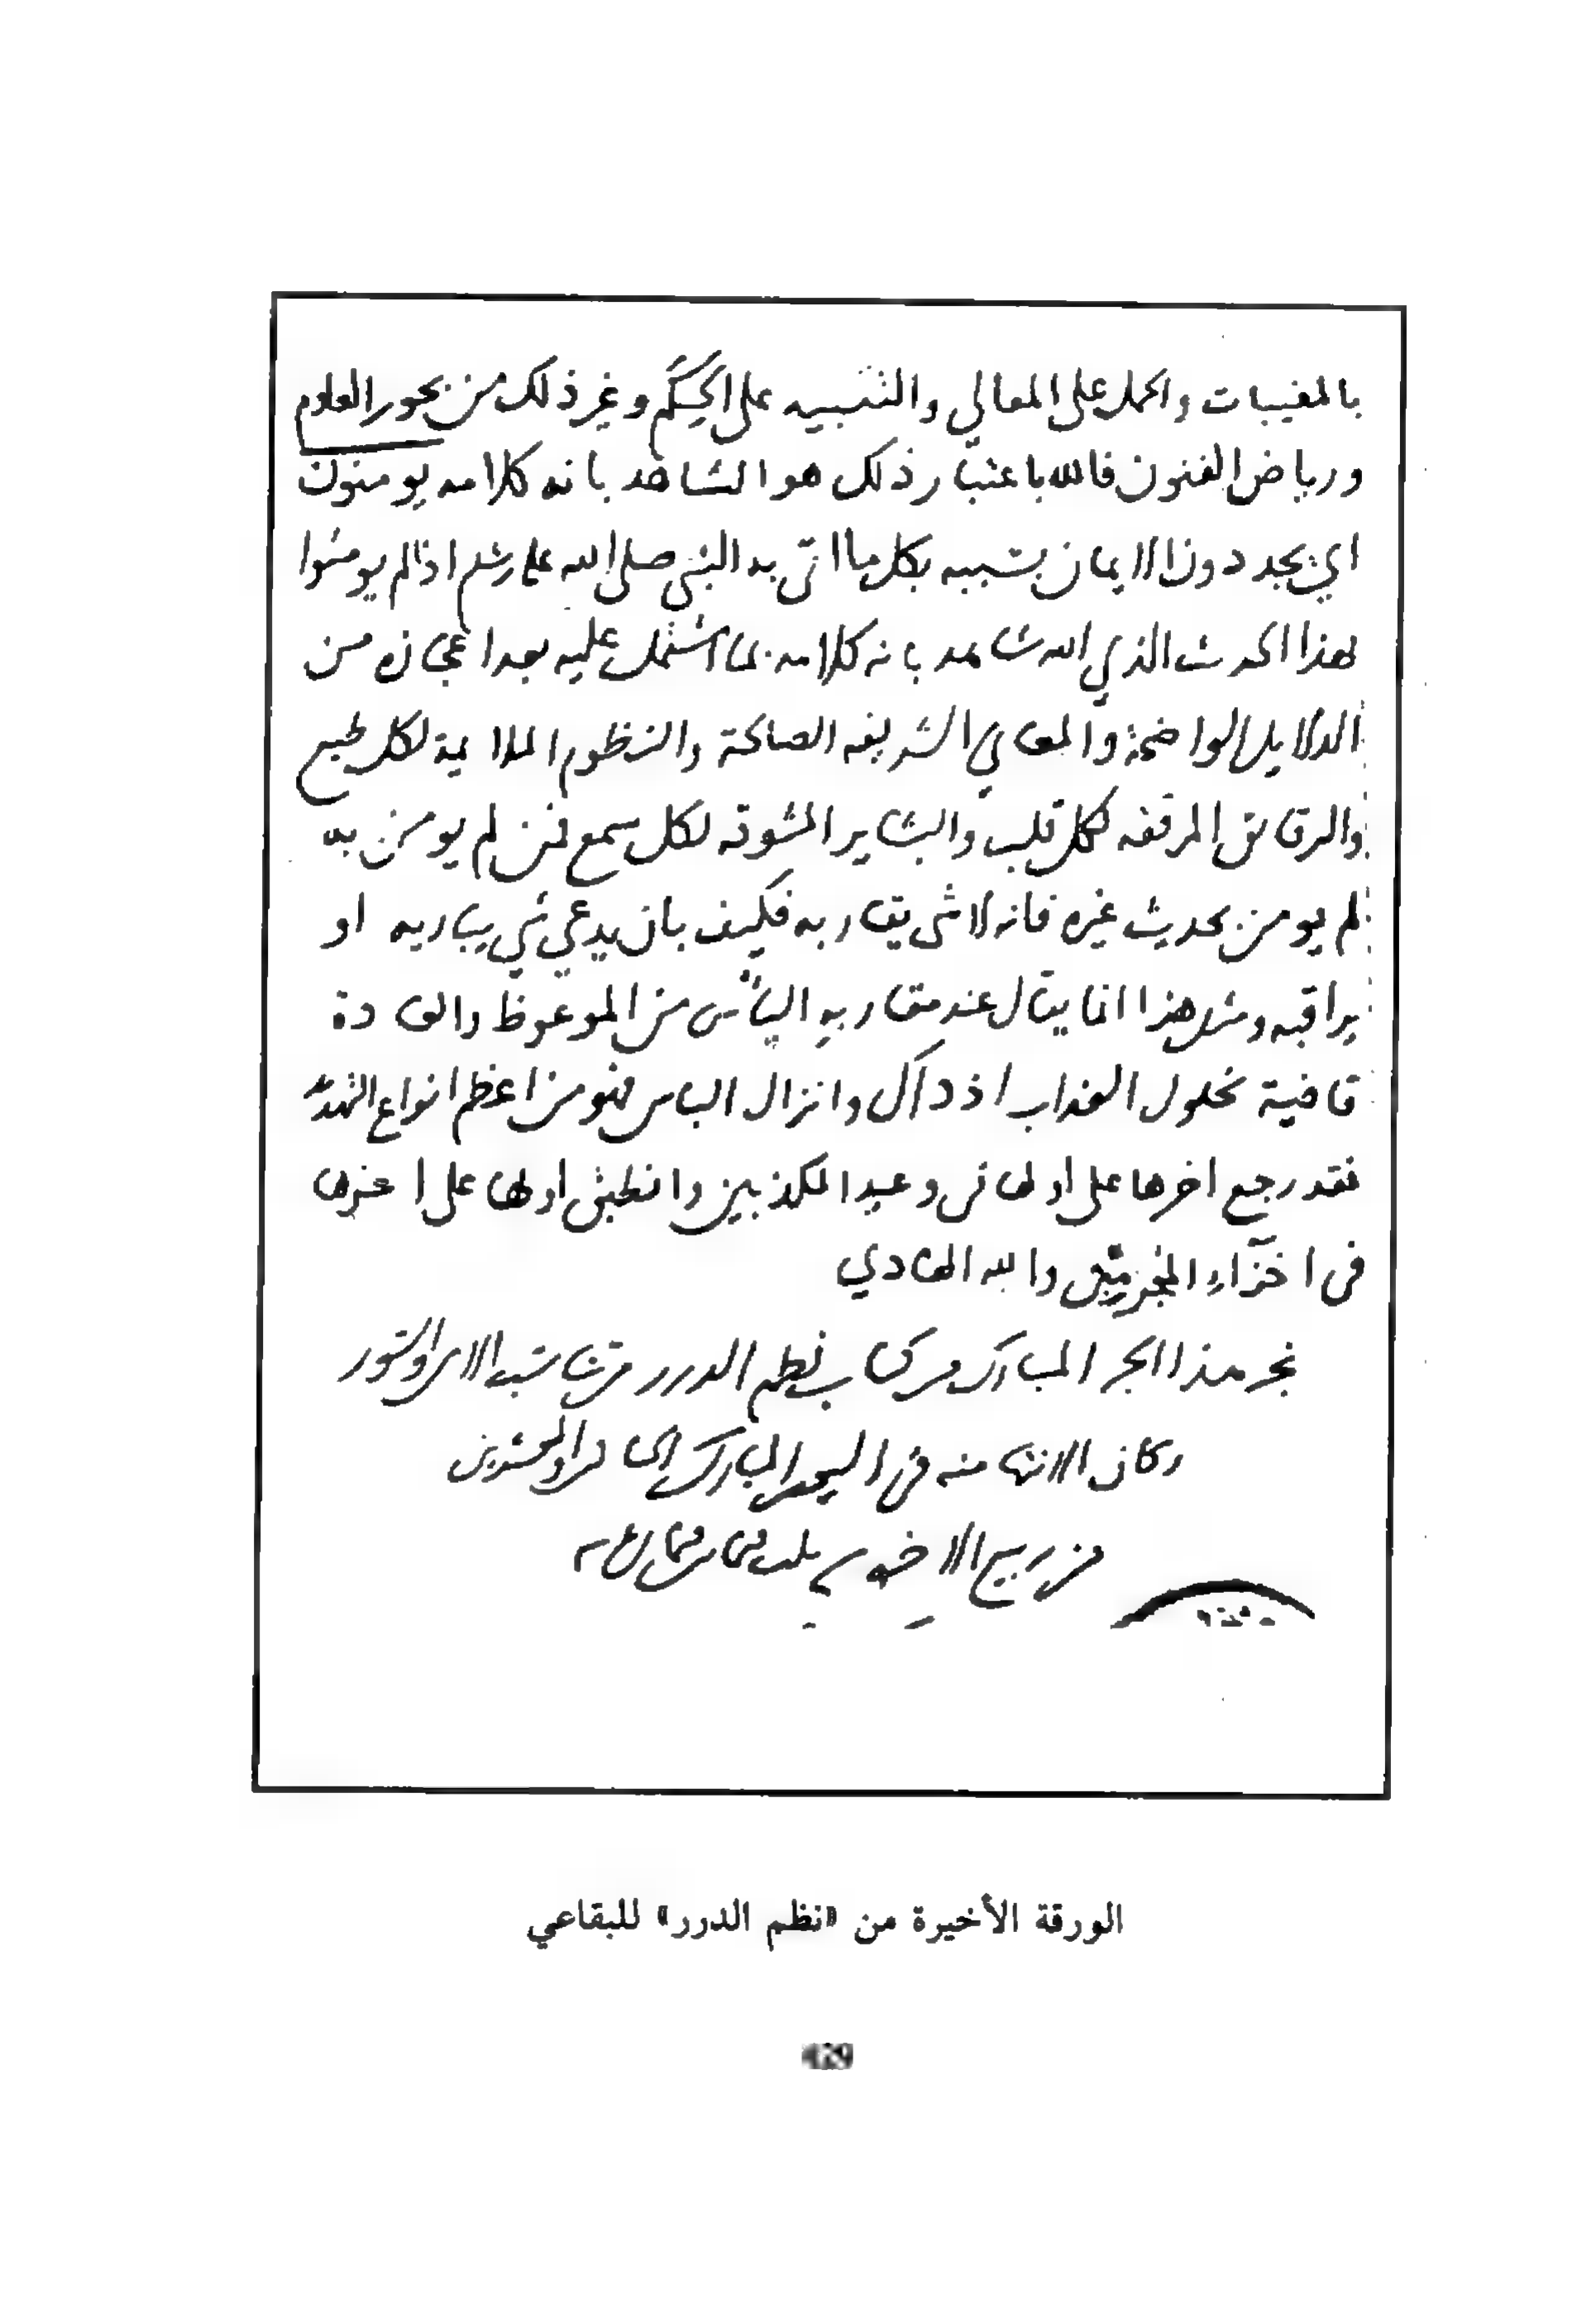 بالمغيبات والحمل على المعالي والتنبيه على الحكم وغير ذلك من بحور العلوم
ورياض الفنون فالله باعتبار ذلك هو الشاهد بانه كلامه يومنون
اي يجددون الايمان بسببه بكل ما اتى به النبي صلى الله عليه وسلم اذا لم يومنوا
بهذا الحديث الذي الله شاهد بانه كلامه بما اشتمل عليه بعد اعجازه من
الدلايل الواضحة والمعاني الشريفه الصالحة والنظوم الملايمة لكل طبع
والرقايق المرققه لكل قلب والبشاير المشوقه لكل سمع فمن لم يومن به
لم يومن بحديث غيره فانه لا شي يقاربه فكيف بان يدعي شي يباريه او
يراقبه ومثل هذا انما يقال عند مقاربة الياس من الموعوظ والعادة
قاضية بحلول العذاب اذ ذاك وانزال الباس فهو من اعظم انواع التهديد
فقد رجع اخرها على اولها في وعيد المكذبين وانطبق اولها على اخرها
في اخزاء المجرمين والله الهادي
نجز هذا الجز المبارك من كتاب نظم الدرر من تناسب الاي والسور
وكان الانتها منه في اليوم المبارك الحادي والعشرين
من ربيع الاخر
الورقة الأخيرة من «نظم الدرر» للبقاعي